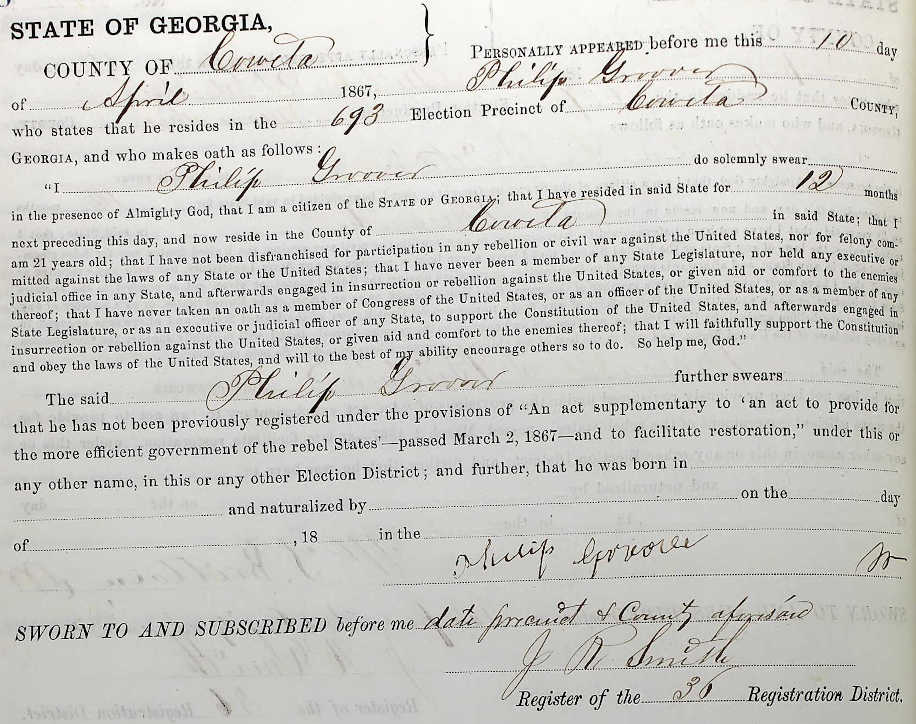 STATE OF GEORGIA,
COUNTY OF Coweta } PERSONALLY APPEARED before me this 10 day
of April 1867, Philip Groover
who states that he resides in the 693 Election Precinct of Coweta COUNTY,
GEORGIA, and who makes oath as follows:
"I Philip Groover do solemnly swear
in the presence of Almighty God, that I am a citizen of the STATE OF GEORGIA; that I have resided in said State for 12 months
next preceding this day, and now reside in the County of Coweta in said State; that I
am 21 years old; that I have not been disfranchised for participation in any rebellion or civil war against the United States, nor for felony com-
mitted against the laws of any State or the United States; that I have never been a member of any State Legislature, nor held any executive or
judicial office in any State, and afterwards engaged in insurrection or rebellion against the United States, or given aid or comfort to the enemies
thereof; that I have never taken an oath as a member of Congress of the United States, or as an officer of the United States, or as a member of any
State Legislature, or as an executive or judicial officer of any State, to support the Constitution of the United States, and afterwards engaged in
insurrection or rebellion against the United States, or given aid and comfort to the enemies thereof; that I will faithfully support the Constitution
and obey the laws of the United States, and will to the best of my ability encourage others so to do. So help me, God."
The said Philip Groover further swears
that he has not been previously registered under the provisions of "An act supplementary to 'an act to provide for
the more efficient government of the rebel States'—passed March 2, 1867—and to facilitate restoration," under this or
any other name, in this or any other Election District; and further, that he was born in
and naturalized by on the day
of , 18 in the
Philip Groover
SWORN TO AND SUBSCRIBED before me date precinct & County aforesaid
J R Smith
Register of the 36 Registration District.